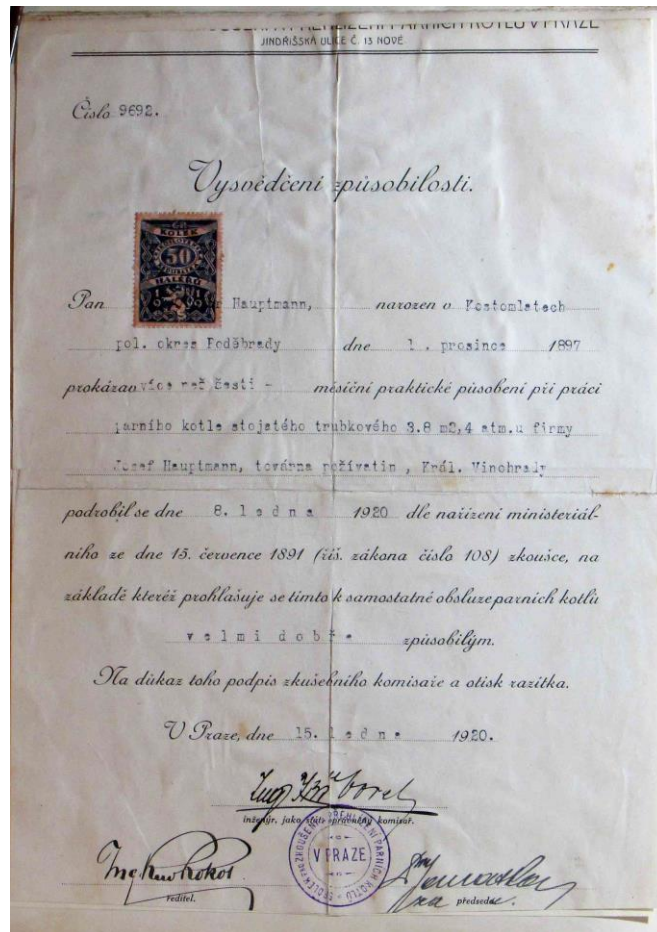 PARNÍCH KOTLŮ V PRAZE
JINDŘIŠSKÁ ULICE Č. 13 NOVÉ
Číslo 9692.
Vysvědčení způsobilosti.
KOLEK
50
HALÉŘŮ
1919
Pan Hauptmann, narozen v Kostomlatech
pol. okres Poděbrady dne 1. prosince 1897
prokázav více než šesti - měsíční praktické působení při práci
parního kotle stojatého trubkového 3.8 m2,4 atm.u firmy
Josef Hauptmann, továrna požívatin , Král. Vinohrady
podrobil se dne 8. ledna 1920 dle nařízení ministeriál-
ního ze dne 15. července 1891 (říš. zákona číslo 108) zkoušce, na
základě kteréž prohlašuje se tímto k samostatné obsluze parních kotlů
velmi dobře způsobilým.
Na důkaz toho podpis zkušebního komisaře a otisk razítka.
V Praze, dne 15. ledna 1920.
Ing
inženýr, jako státe zkušební komisař.
ZKOUŠENÍ A PŘEHLÍŽENÍ PARNÍCH KOTLŮ
V PRAZE
Ing
ředitel.
za předseda